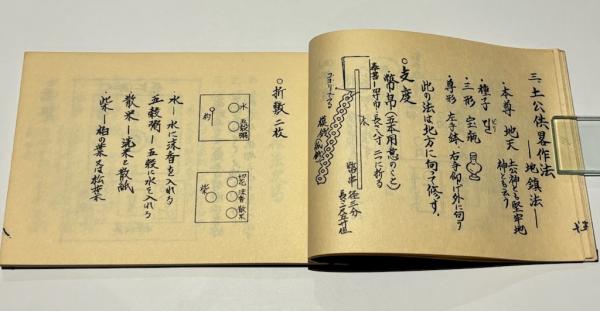 三、土公供畧作法
―地鎮法―
・本尊 地天 土公神とも堅牢地
神とも云う
・種子
・三形 宝瓶
・尊形 左手鉢、右手仰げ外に向う
此の法は北方に向って修す。
○支度
幣帛（五本用意のこと）
長八寸 二つに折る
幣串 径三分
○折敷二枚
水
五穀粥
杓
切花
塗香
散米
柴
水―水に抹香を入れる
五穀粥―五穀に水を入れる
散米―洗米と散紙
柴―柏の葉又は松葉